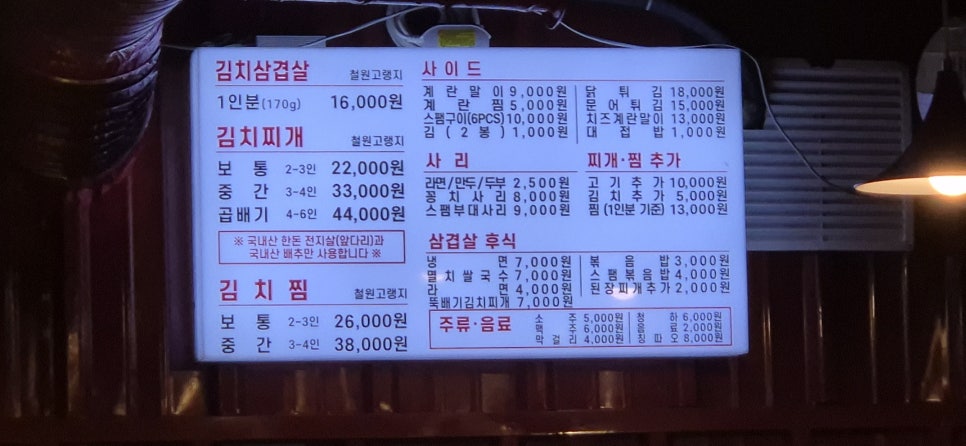 김치삼겹살 철원고랭지
1인분(170g) 16,000원
김치찌개 철원고랭지
보통 2-3인 22,000원
중간 3-4인 33,000원
곱배기 4-6인 44,000원
※ 국내산 한돈 전지살(앞다리)과
국내산 배추만 사용합니다 ※
김치찜 철원고랭지
보통 2-3인 26,000원
중간 3-4인 38,000원
사이드
계란말이 9,000원
계란찜 5,000원
스팸구이(6PCS) 10,000원
김(2봉) 1,000원
닭튀김 18,000원
문어튀김 15,000원
치즈계란말이 13,000원
대접밥 1,000원
사리
라면/만두/두부 2,500원
꽁치사리 8,000원
스팸부대사리 9,000원
찌개·찜 추가
고기추가 10,000원
김치추가 5,000원
찜(1인분 기준) 13,000원
삼겹살 후식
냉면 7,000원
멸치쌀국수 7,000원
라면 4,000원
뚝배기김치찌개 7,000원
볶음밥 3,000원
스팸볶음밥 4,000원
된장찌개추가 2,000원
주류·음료
소주 5,000원
맥주 6,000원
막걸리 4,000원
청하 6,000원
음료 2,000원
칭따오 8,000원